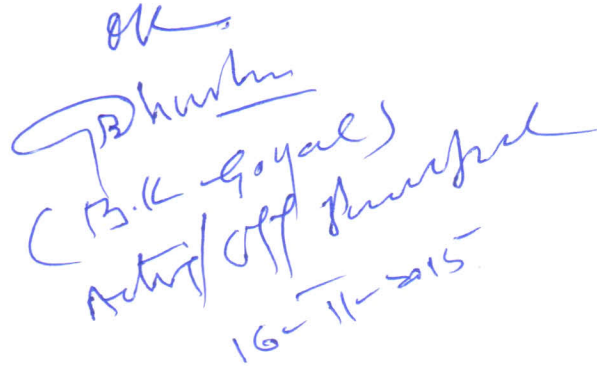 OK
Bhushan
(B.K Goyal)
Acting/Off Principal
16-11-2015